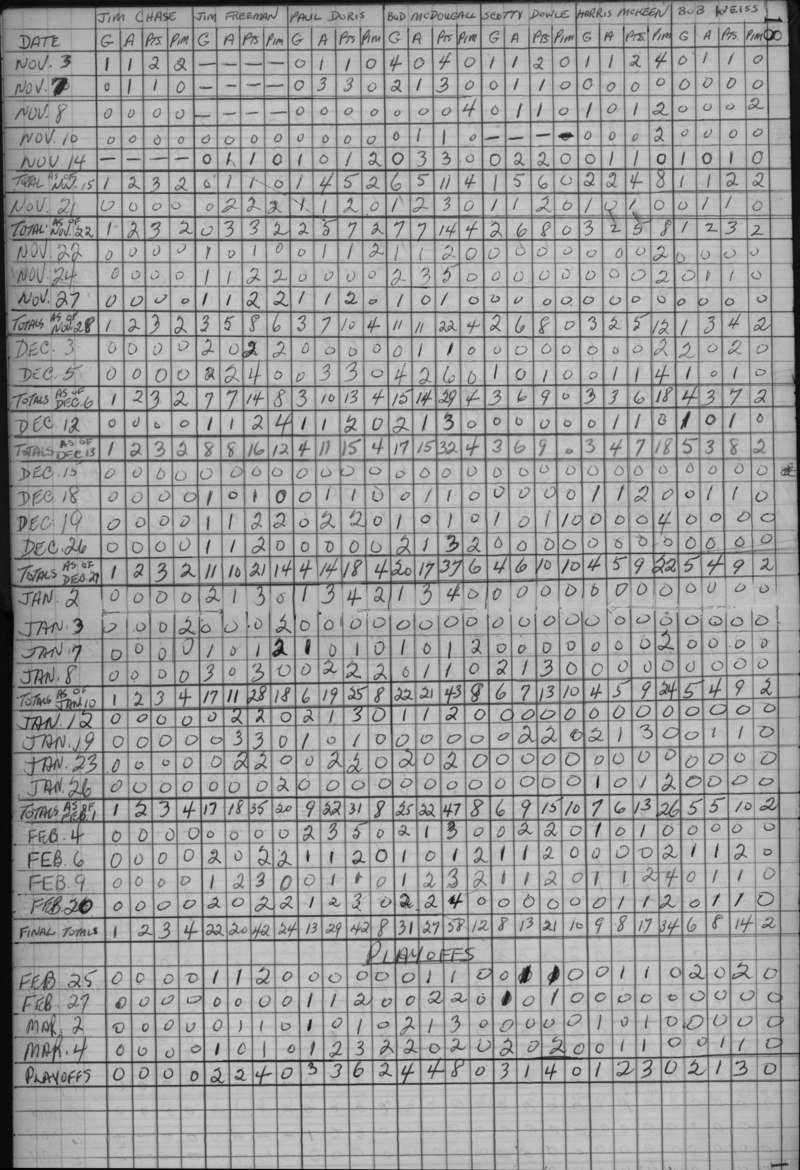 JIM CHASE JIM FREEMAN PAUL DORIS BUD MCDOUGALL SCOTTY DOWLE HARRIS MCKEEN BOB WEISS 18
DATE G A Pts. Pim G A Pts Pim G A Pts Pim G A Pts Pim G A Pts Pim G A Pts Pim G A Pts. Pim
NOV. 3 1 1 2 2 — — — — 0 1 1 0 4 0 4 0 1 1 2 0 1 1 2 4 0 1 1 0
NOV. 7 0 1 1 0 — — — — 0 3 3 0 2 1 3 0 0 1 1 0 0 0 0 0 0 0 0 0
NOV. 8 0 0 0 0 — — — — 0 0 0 0 0 0 0 4 0 1 1 0 1 0 1 2 0 0 0 2
NOV. 10 0 0 0 0 0 0 0 0 0 0 0 0 0 1 1 0 — — — — 0 0 0 2 0 0 0 0
NOV. 14 — — — — 0 1 1 0 1 0 1 2 0 3 3 0 0 2 2 0 0 1 1 0 1 0 1 0
TOTAL AS OF NOV. 15 1 2 3 2 0 1 1 0 1 4 5 2 6 5 11 4 1 5 6 0 2 2 4 8 1 1 2 2
NOV. 21 0 0 0 0 0 2 2 2 1 1 2 0 1 2 3 0 1 1 2 0 1 0 1 0 0 1 1 0
TOTAL AS OF NOV. 22 1 2 3 2 0 3 3 2 2 5 7 2 7 7 14 4 2 6 8 0 3 2 5 8 1 2 3 2
NOV. 22 0 0 0 0 1 0 1 0 0 1 1 2 1 1 2 0 0 0 0 0 0 0 0 2 0 0 0 0
NOV. 24 0 0 0 0 1 1 2 2 0 0 0 0 2 3 5 0 0 0 0 0 0 0 0 2 0 1 1 0
NOV. 27 0 0 0 0 1 1 2 2 1 1 2 0 1 0 1 0 0 0 0 0 0 0 0 0 0 0 0 0
TOTALS AS OF NOV. 28 1 2 3 2 3 5 8 6 3 7 10 4 11 11 22 4 2 6 8 0 3 2 5 12 1 3 4 2
DEC. 3 0 0 0 0 2 0 2 2 0 0 0 0 0 1 1 0 0 0 0 0 0 0 0 2 2 0 2 0
DEC. 5 0 0 0 0 2 2 4 0 0 3 3 0 4 2 6 0 1 0 1 0 0 1 1 4 1 0 1 0
TOTALS AS OF DEC. 6 1 2 3 2 7 7 14 8 3 10 13 4 15 14 29 4 3 6 9 0 3 3 6 18 4 3 7 2
DEC. 12 0 0 0 0 1 1 2 4 1 1 2 0 2 1 3 0 0 0 0 0 0 1 1 0 1 0 1 0
TOTALS AS OF DEC 13 1 2 3 2 8 8 16 12 4 11 15 4 17 15 32 4 3 6 9 0 3 4 7 18 5 3 8 2
DEC. 15 0 0 0 0 0 0 0 0 0 0 0 0 0 0 0 0 0 0 0 0 0 0 0 0 0 0 0 0
DEC 18 0 0 0 0 1 0 1 0 0 1 1 0 0 1 1 0 0 0 0 0 1 1 2 0 0 1 1 0
DEC. 19 0 0 0 0 1 1 2 2 0 2 2 0 1 0 1 0 1 0 1 10 0 0 0 4 0 0 0 0
DEC. 26 0 0 0 0 1 1 2 0 0 0 0 0 2 1 3 2 0 0 0 0 0 0 0 0 0 0 0 0
TOTALS AS OF DEC. 29 1 2 3 2 11 10 21 14 4 14 18 4 20 17 37 6 4 6 10 10 4 5 9 22 5 4 9 2
JAN. 2 0 0 0 0 2 1 3 0 1 3 4 2 1 3 4 0 0 0 0 0 0 0 0 0 0 0 0 0
JAN. 3 0 0 0 2 0 0 0 2 0 0 0 0 0 0 0 0 0 0 0 0 0 0 0 0 0 0 0 0
JAN. 7 0 0 0 0 1 0 1 2 1 0 1 0 1 0 1 2 0 0 0 0 0 0 0 2 0 0 0 0
JAN. 8 0 0 0 0 3 0 3 0 0 2 2 2 0 1 1 0 2 1 3 0 0 0 0 0 0 0 0 0
TOTALS AS OF JAN. 10 1 2 3 4 17 11 28 18 6 19 25 8 22 21 43 8 6 7 13 10 4 5 9 24 5 4 9 2
JAN. 12 0 0 0 0 0 2 2 0 2 1 3 0 1 1 2 0 0 0 0 0 0 0 0 0 0 0 0 0
JAN. 19 0 0 0 0 0 3 3 0 1 0 1 0 0 0 0 0 0 2 2 0 2 1 3 0 0 1 1 0
JAN. 23 0 0 0 0 0 2 2 0 0 2 2 0 2 0 2 0 0 0 0 0 0 0 0 0 0 0 0 0
JAN. 26 0 0 0 0 0 0 0 2 0 0 0 0 0 0 0 0 0 0 0 0 1 0 1 2 0 0 0 0
TOTALS AS OF FEB. 1 1 2 3 4 17 18 35 20 9 22 31 8 25 22 47 8 6 9 15 10 7 6 13 26 5 5 10 2
FEB. 4 0 0 0 0 0 0 0 0 2 3 5 0 2 1 3 0 0 2 2 0 1 0 1 0 0 0 0 0
FEB. 6 0 0 0 0 2 0 2 2 1 1 2 0 1 0 1 2 1 1 2 0 0 0 0 2 1 1 2 0
FEB. 9 0 0 0 0 1 2 3 0 0 1 1 0 1 2 3 2 1 1 2 0 1 1 2 4 0 1 1 0
FEB. 20 0 0 0 0 2 0 2 2 1 2 3 0 2 2 4 0 0 0 0 0 0 1 1 2 0 1 1 0
FINAL TOTALS 1 2 3 4 22 20 42 24 13 29 42 8 31 27 58 12 8 13 21 10 9 8 17 34 6 8 14 2
PLAYOFFS
FEB. 25 0 0 0 0 1 1 2 0 0 0 0 0 0 1 1 0 0 1 1 0 0 1 1 0 2 0 2 0
FEB 27 0 0 0 0 0 0 0 0 1 1 2 0 0 2 2 0 1 0 1 0 0 0 0 0 0 0 0 0
MAR. 2 0 0 0 0 0 1 1 0 1 0 1 0 2 1 3 0 0 0 0 0 1 0 1 0 0 0 0 0
MAR. 4 0 0 0 0 1 0 1 0 1 2 3 2 2 0 2 0 2 0 2 0 0 1 1 0 0 1 1 0
PLAYOFFS 0 0 0 0 2 2 4 0 3 3 6 2 4 4 8 0 3 1 4 0 1 2 3 0 2 1 3 0